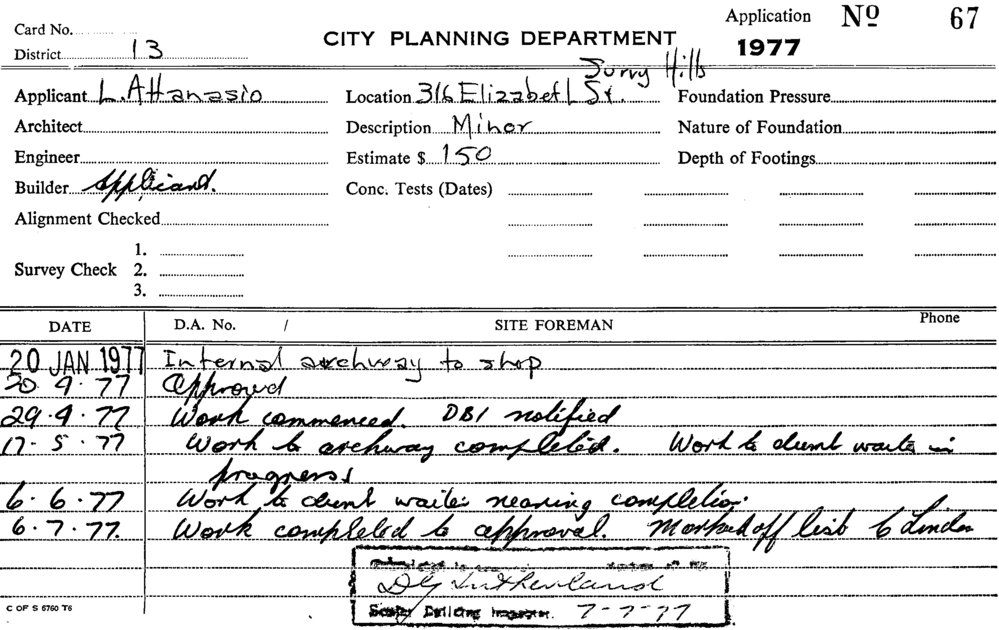 Application Nº 67
Card No.
District 13
CITY PLANNING DEPARTMENT 1977
Surry Hills
Applicant L. Attanasio Location 316 Elizabeth St. Foundation Pressure
Architect Description Minor Nature of Foundation
Engineer Estimate $ 150 Depth of Footings
Builder Applicant. Conc. Tests (Dates)
Alignment Checked
1.
Survey Check 2.
3.
DATE D.A. No. / SITE FOREMAN Phone
20 JAN 1977 Internal archway to shop
20.4.77 Approved
29.4.77 Work commenced. DBI notified
17-5.77 Work to archway completed. Work to in
progress
6.6.77 Work to nearing completion.
6.7.77. Work completed to approval. Marked off list
D G Sutherland
C OF S 6760 T6 Building Inspector. 7-7-77